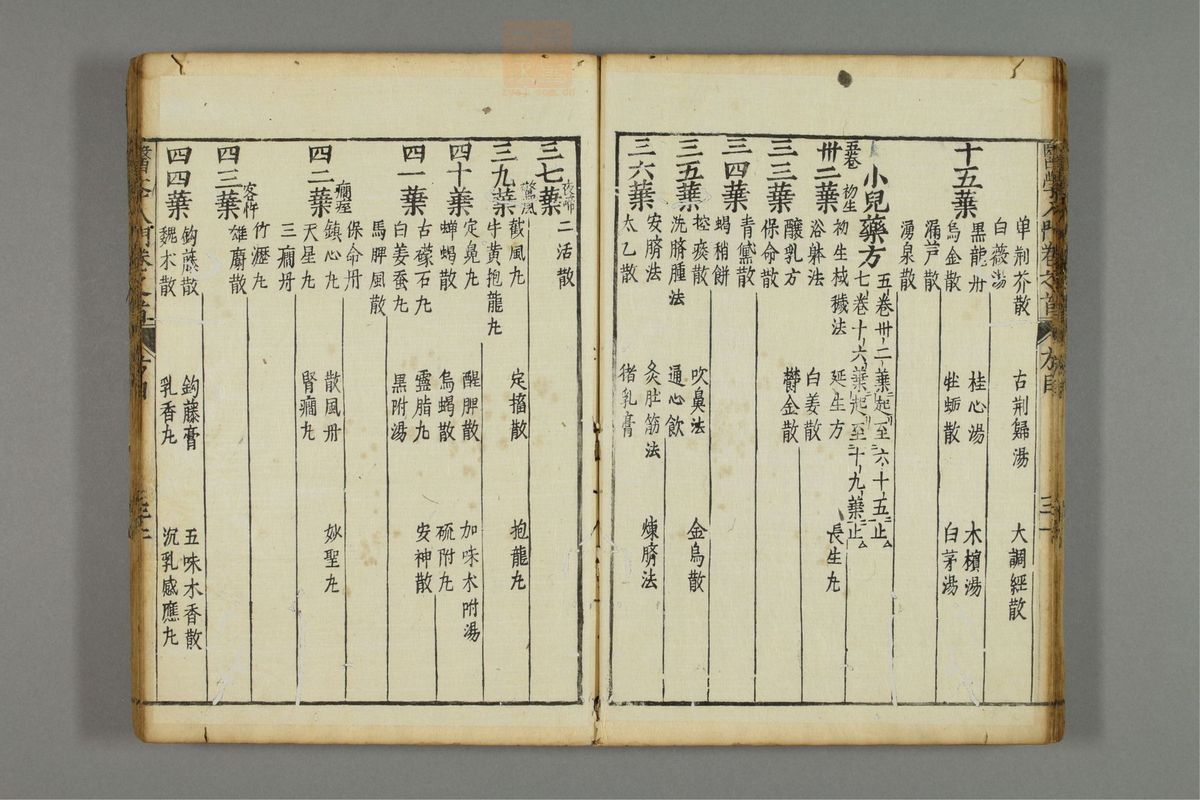 单荆芥散 古荆歸湯 大調經散
白薇湯
十五葉
黒龍丹 桂心湯 木檳湯
烏金散 牡蛎散 白茅湯
漏芦散
湧泉散
小兒藥方 五卷卅二葉起至六十五止
七卷十六葉起至十九葉止
五卷
卅二葉 初生
初生拭穢法 延生方 長生九
浴躰法 白姜散
三三葉
釀乳方 欝金散
保命散
三四葉
青黛散
蝎稍餅
三五葉
控痰散 吹鼻法 金烏散
洗臍腫法 通心飲
三六葉
安臍法 灸肚筋法 煉臍法
太乙散 猪乳膏
三七葉 夜啼
二活散
三九葉 驚風
截風九 定搐散 抱龍九
牛黄抱龍九
四十葉
定魄九 醒脾散 加味术附湯
蟬蝎散 烏蝎散 硫附九
四一葉
古礞石九 靈脂九 安神散
白姜蚕九 黒附湯
馬脾風散
四二葉 癇痙
保命丹
鎮心九 散風丹 妙聖九
天星九 腎癇九
三癇丹
四三葉 客忤
竹瀝九
雄麝散
四四葉
鈎藤散 鈎藤膏 五味木香散
魏木散 乳香九 沉乳感應九